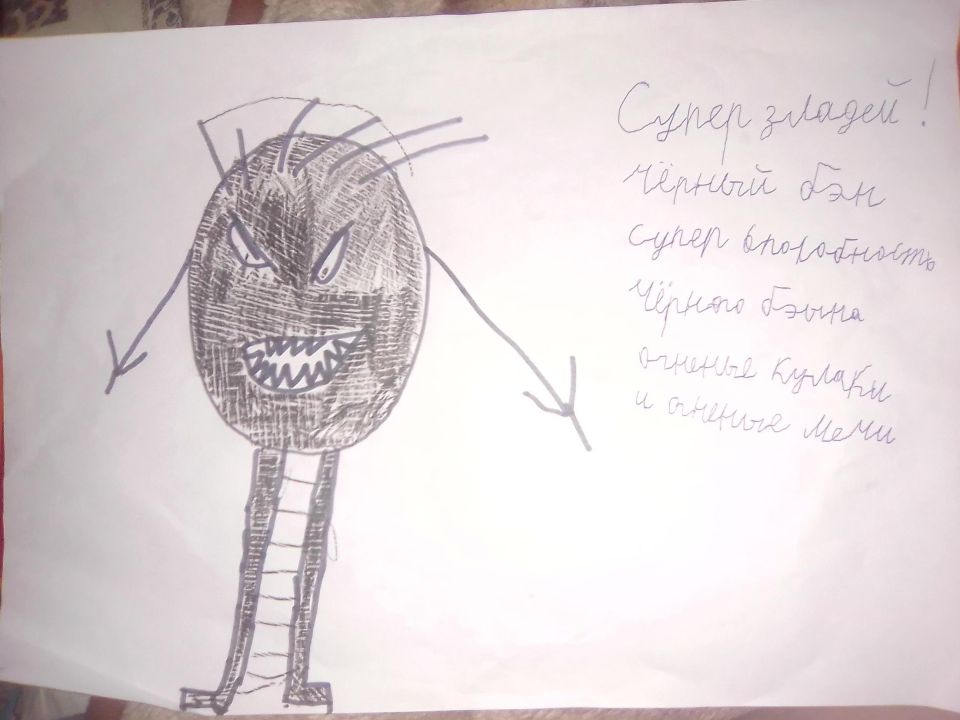 Супер зладей!
Чёрный бэн
супер способность
Чёрного бэына
огненые кулаки
и огненые мечи